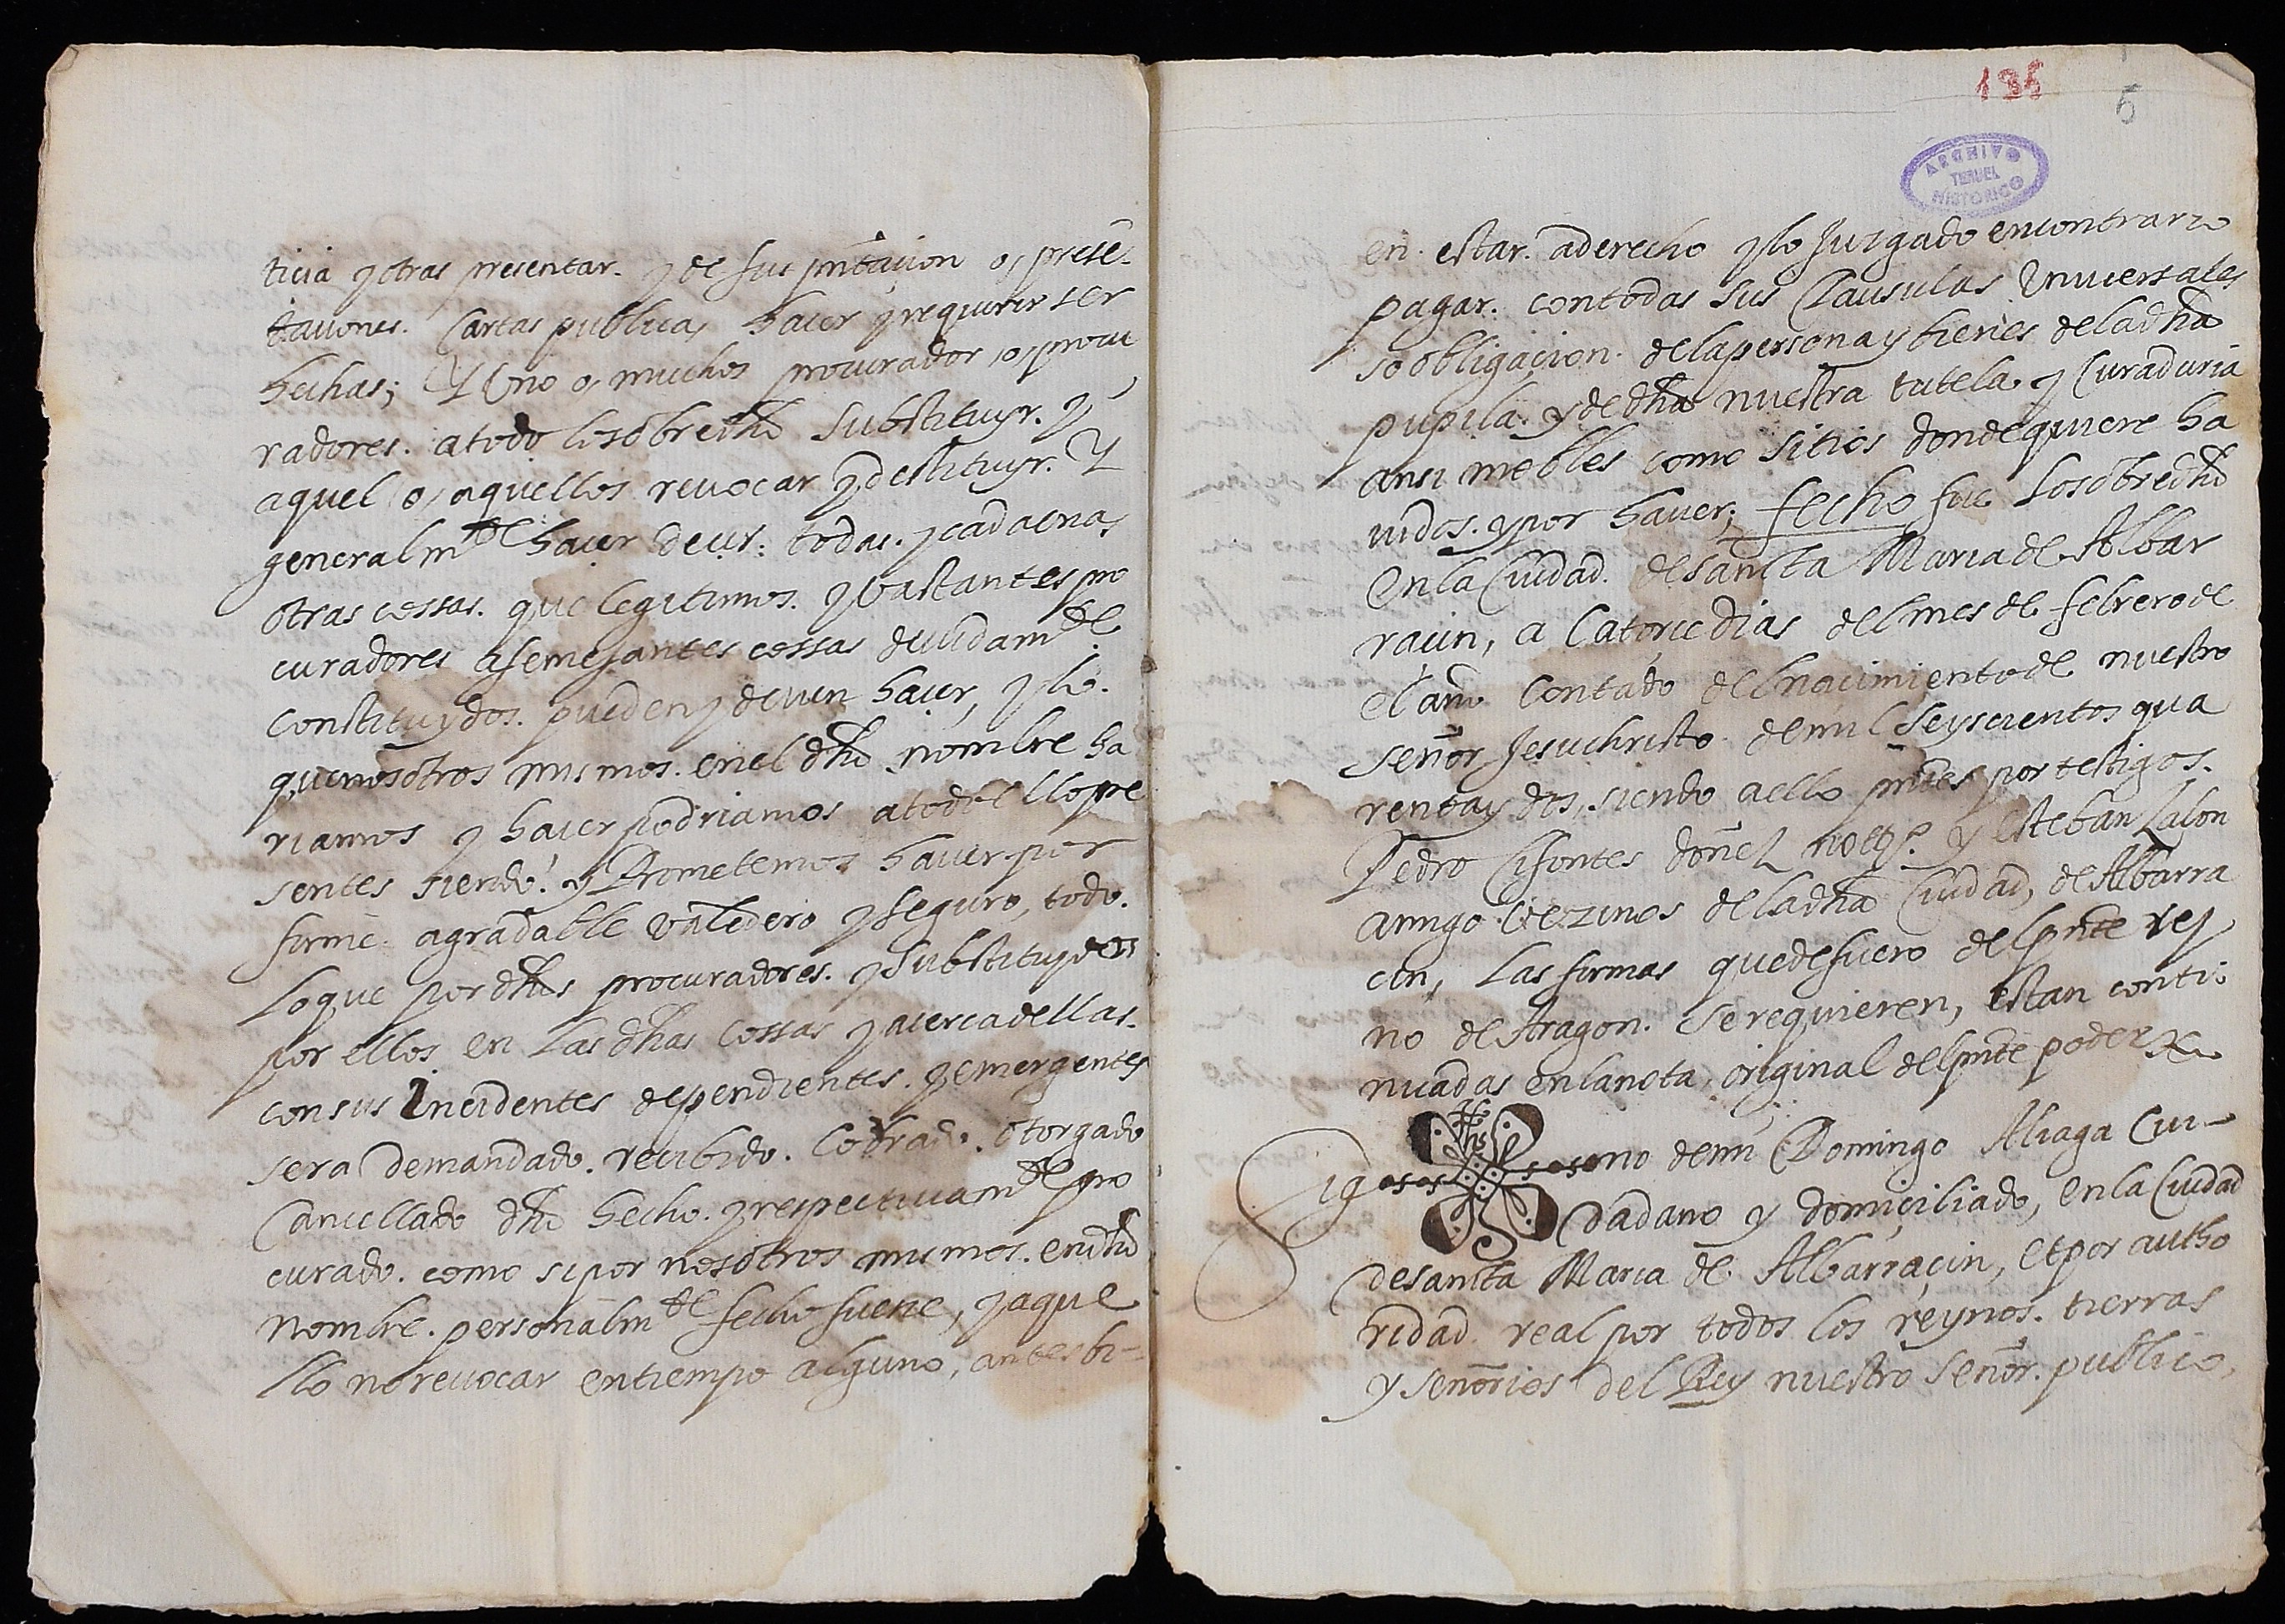 ticia y otras presentar. y de su pntacion o, presē-
taciones. Cartas publicas hacer y requerir ser
hechas; Y Uno o, muchos procurador, o, procu
radores. a todo lo sobredho substituyr. y
aquel o, aquellos revocar y destituyr. Y
generalmte hacer decir: todas. y cada unas
otras cossas. que legitimos. y bastantes pro
curadores a semejantes cossas devidamte.
constituydos. pueden y deven hacer, y lo.
que nosotros mismos. en el dho nombre ha
riamos y hacer podriamos a todo ello pre
sentes siendo. y Prometemos haver por
firme. agradable valedero y seguro, todo.
lo que por dhos procuradores. y substituydos
por ellos en las dhas cossas y acerca dellas.
con sus Incidentes dependientes. y emergentes
sera demandado. recibido. cobrado. otorgado
cancellado dho hecho. y respectivamte pro
curado. como si por nosotros mismos. en dho
nombre. personalmte fecho fuese, y aque
llo no revocar en tiempo alguno, antes bi-
135
5
ARCHIVO
TERUEL
HISTORICO
en. estar. a derecho y lo Juzgado en contrario
pagar. con todas sus Clausulas Universales
so obligacion. de la persona y bienes de la dha
pupila. y de dha nuestra tutela. y Curaduria
ansi mobles como sitios donde quiere ha
vidos. y por haver; fecho fue lo sobredho
en la Ciudad. de sancta Maria de Albar
racin, a Catorce dias del mes de febrero de
el año Contado del nacimiento de nuestro
señor Jesuchristo de mil Seyscientos qua
renta y dos, siendo a ello pntes por testigos.
Pedro Cifontes doñel notº. y esteban Lalon
amigo vezinos de la dha Ciudad, de Albarra
cin, las firmas que de fuero del pnte rey
no de Aragon. se requieren, estan conti-
nuadas en la nota, original del pnte poder
Sig no de mi Domingo Aliaga Ciu-
dadano y domiciliado, en la Ciudad
de sancta Maria de Albarracin, et por autho
ridad real por todos los reynos. tierras
y señorios del Rey nuestro señor. publico,